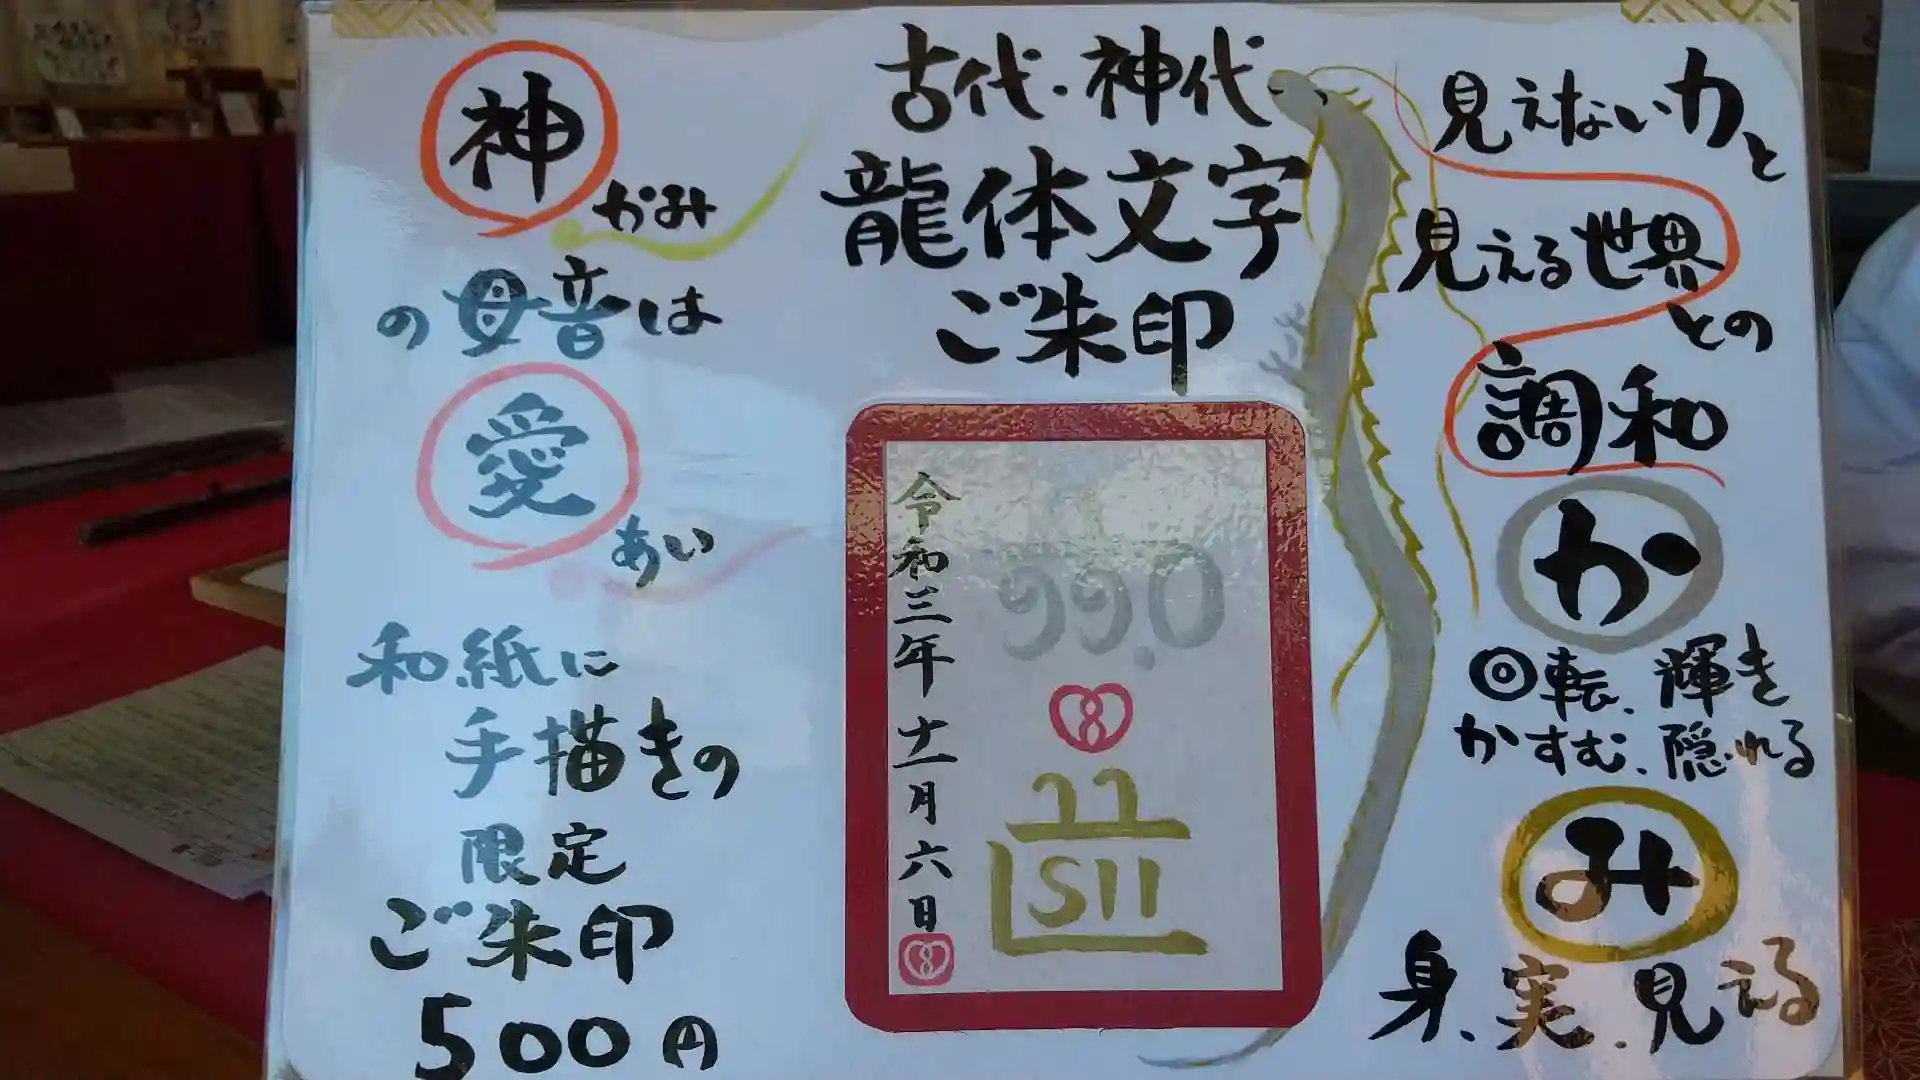 古代・神代
龍体文字
ご朱印
見えない力と
見える世界
との
調和
か
回転、輝き
かすむ、隠れる
み
身、実、見える
神
かみ
の母音は
愛
あい
和紙に
手描きの
限定
ご朱印
500円
令和三年十一月六日